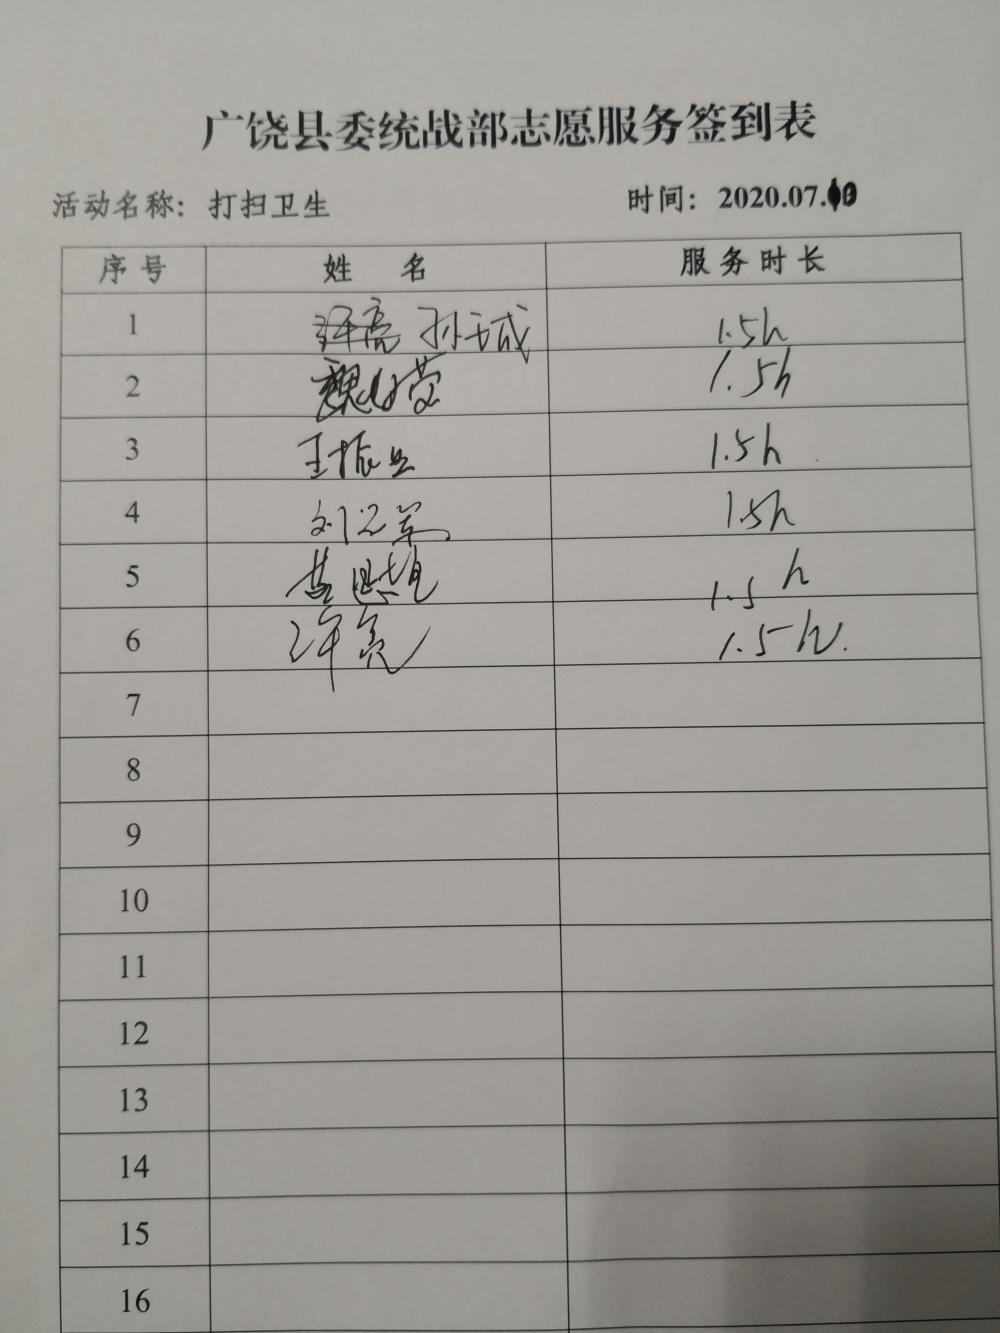 广饶县委统战部志愿服务签到表
活动名称：打扫卫生 时间：2020.07.
序号 姓 名 服务时长
1 孙玉成 1.5h
2 魏 1.5h
3 王振 1.5h
4 刘 军 1.5h
5 1.5h
6 许亮 1.5h.
7
8
9
10
11
12
13
14
15
16